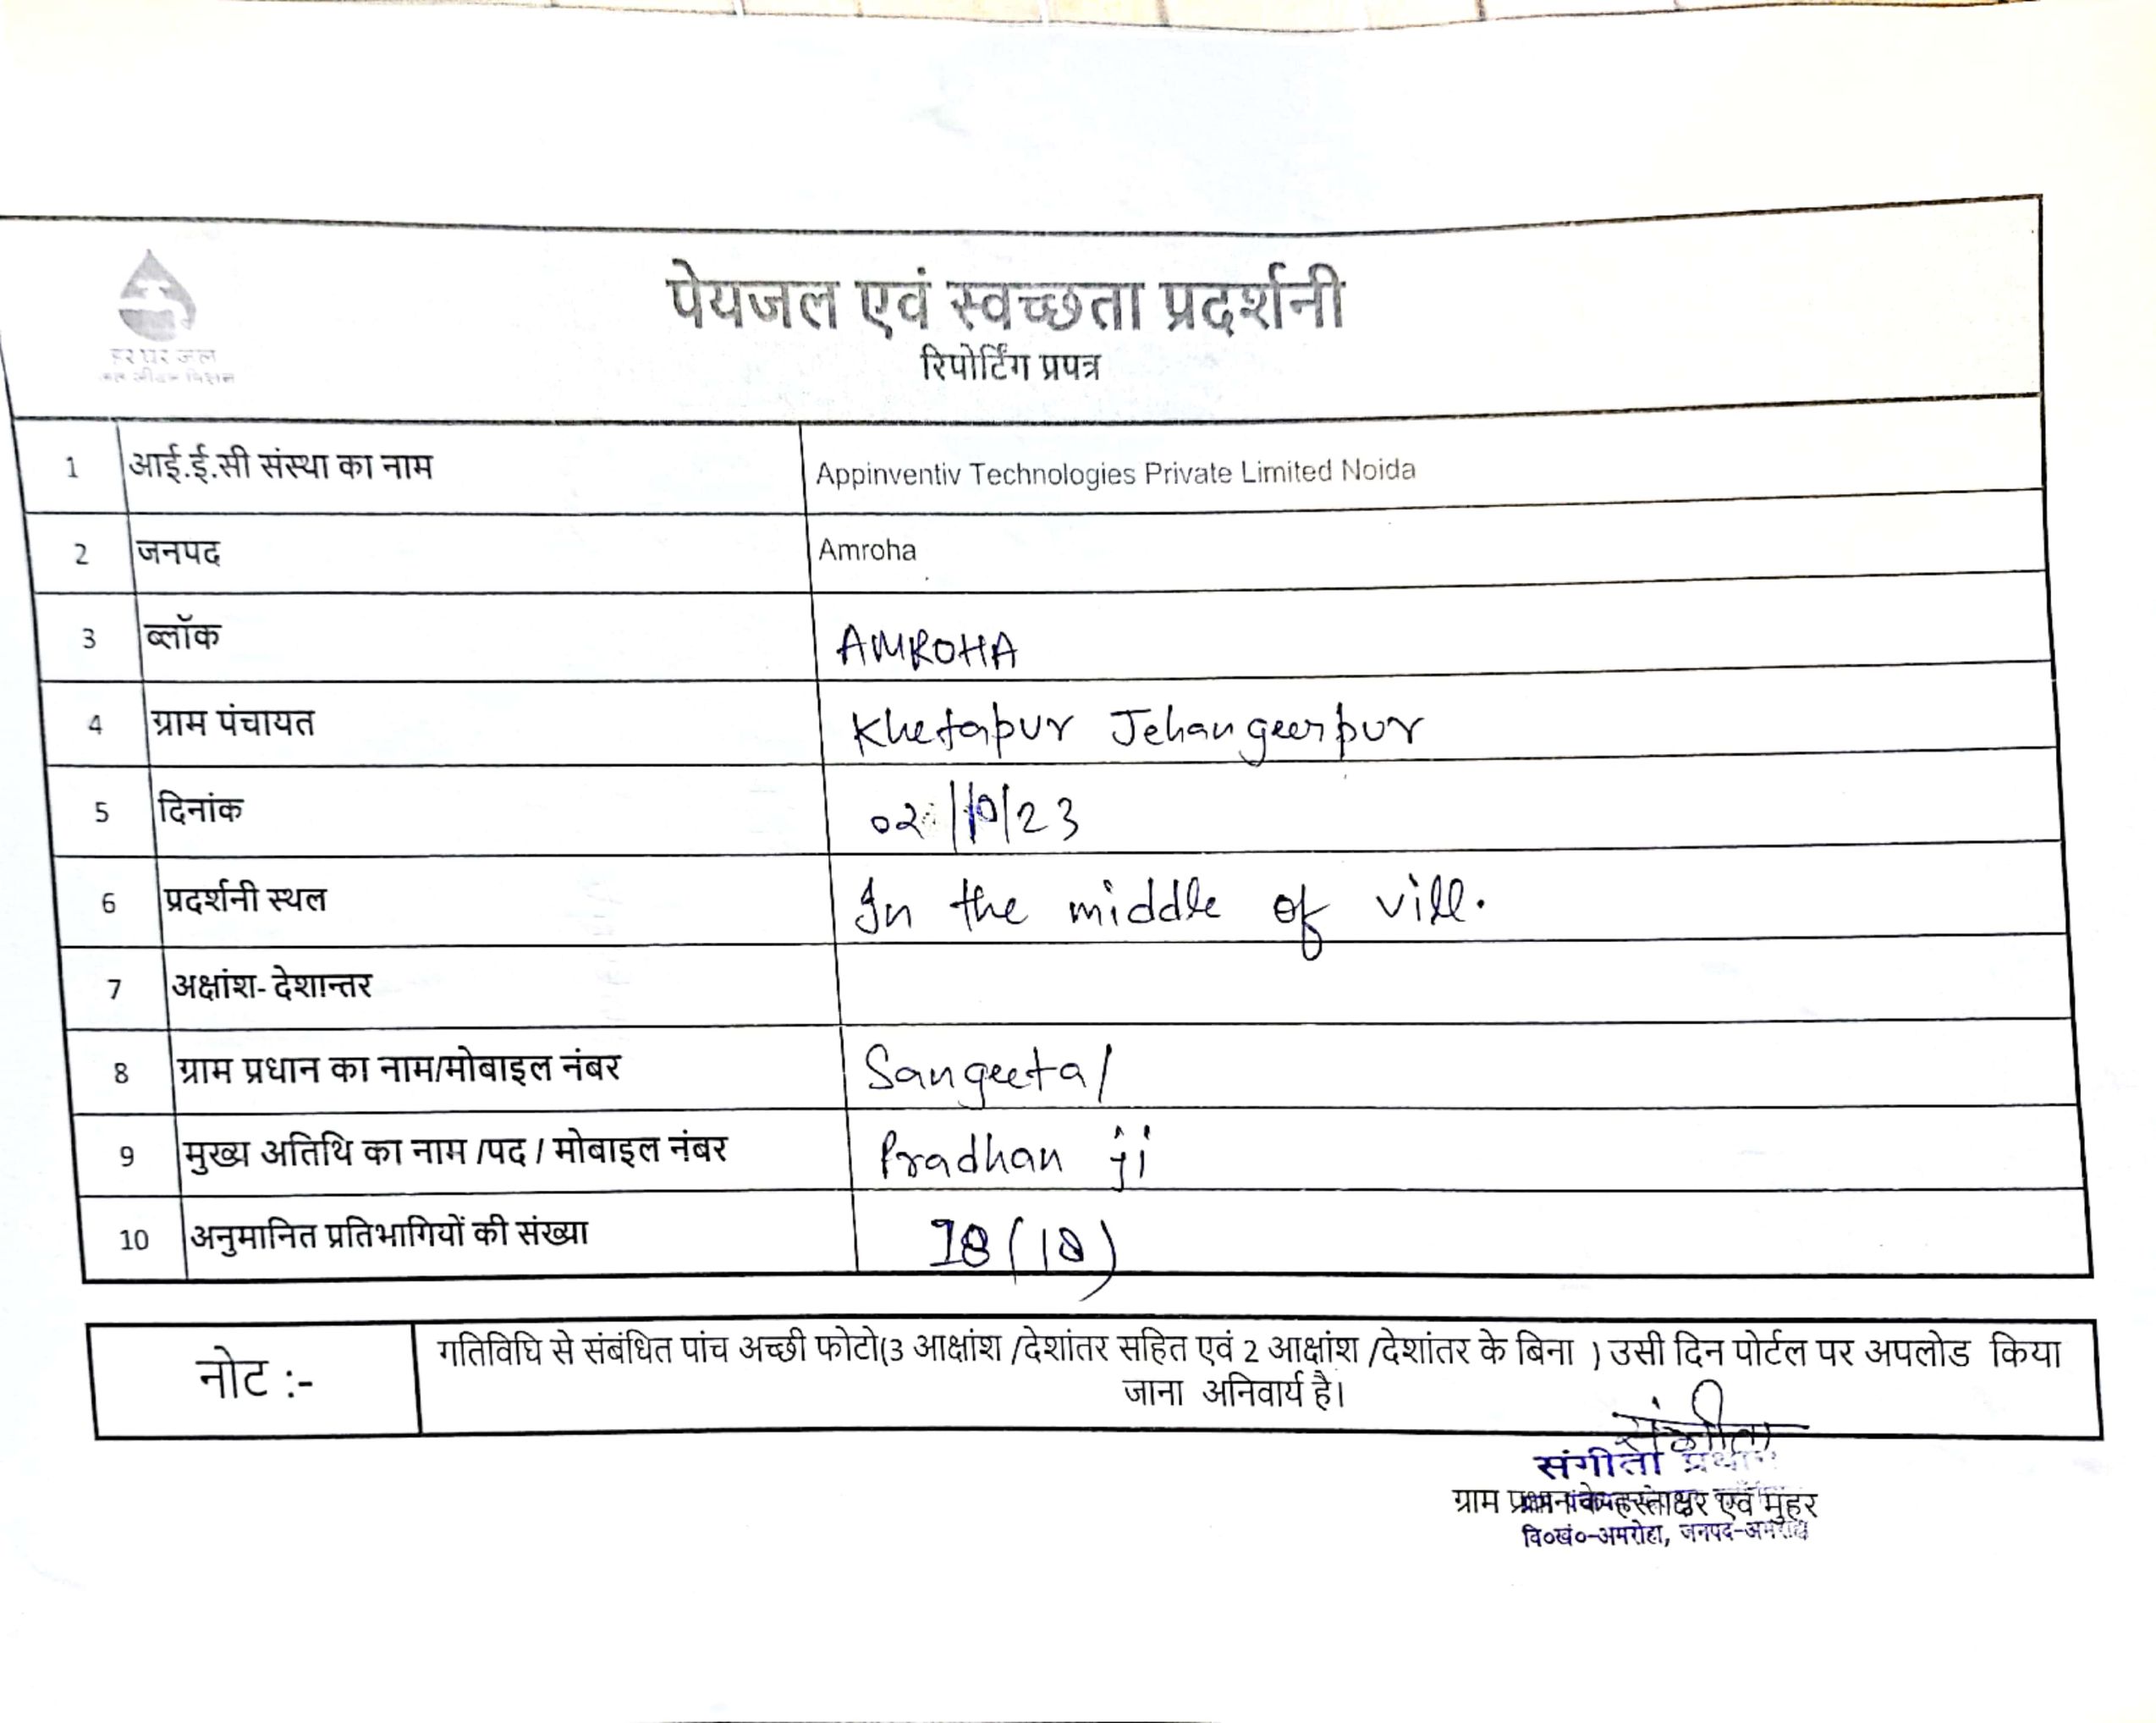 हर घर जल
जल जीवन मिशन
पेयजल एवं स्वच्छता प्रदर्शनी
रिपोर्टिंग प्रपत्र
1 आई.ई.सी संस्था का नाम Appinventiv Technologies Private Limited Noida
2 जनपद Amroha
3 ब्लॉक AMROHA
4 ग्राम पंचायत Khetapur Jehangeerpur
5 दिनांक 02/10/23
6 प्रदर्शनी स्थल In the middle of vill.
7 अक्षांश- देशान्तर
8 ग्राम प्रधान का नाम/मोबाइल नंबर Sangeeta/
9 मुख्य अतिथि का नाम /पद / मोबाइल नंबर Pradhan ji
10 अनुमानित प्रतिभागियों की संख्या 18 (18)
नोट :- गतिविधि से संबंधित पांच अच्छी फोटो(3 आक्षांश /देशांतर सहित एवं 2 आक्षांश /देशांतर के बिना ) उसी दिन पोर्टल पर अपलोड किया
जाना अनिवार्य है।
संगीता
संगीता प्रधान
ग्राम प्रधान के हस्ताक्षर एवं मुहर
वि०खं०-अमरोहा, जनपद-अमरोहा